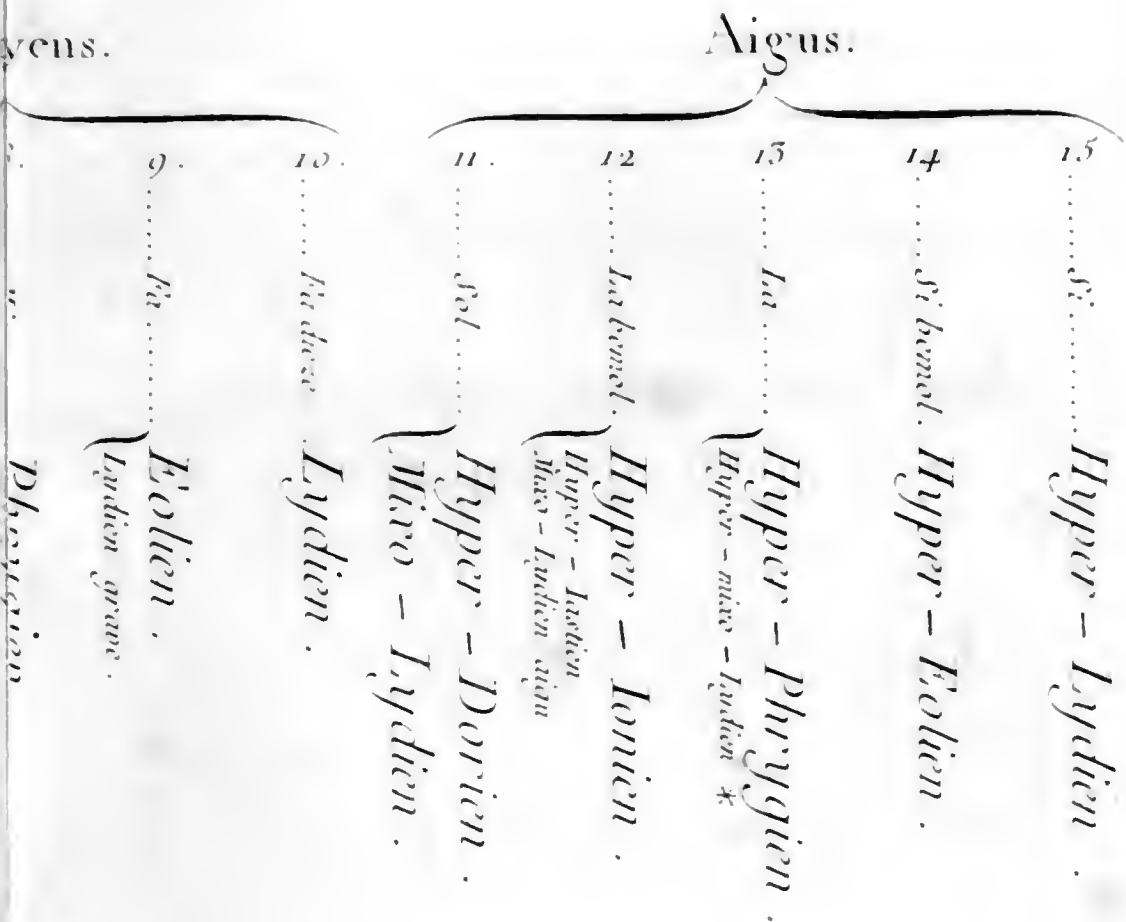 yens.
Aigus.
9.
10.
11.
12
13
14
15
Fa
Eolien.
Lydien grave.
Fa dieze
Lydien.
Sol
Hyper - Dorien.
Mixo - Lydien.
La bemol.
Hyper - Ionien.
Hyper - Iastien
Mixo - Lydien aigu
La
Hyper - Phrygien.
Hyper - mixo - Lydien *
Si bemol.
Hyper - Eolien.
Si
Hyper - Lydien.
Phrygien